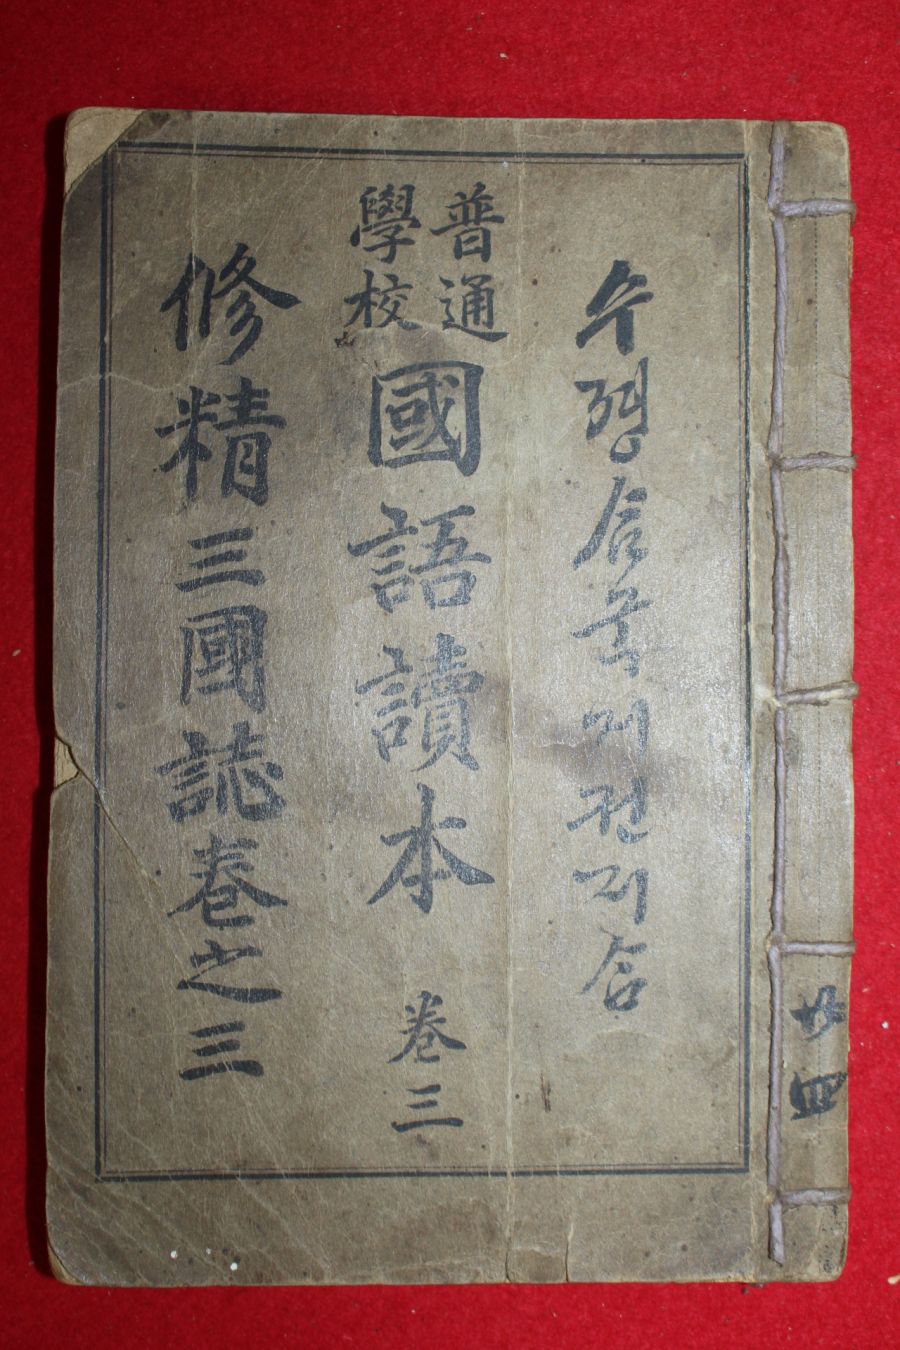 廿四
수졍삼국지권지삼
普通
學校
國語讀本 卷三
修精三國誌卷之三